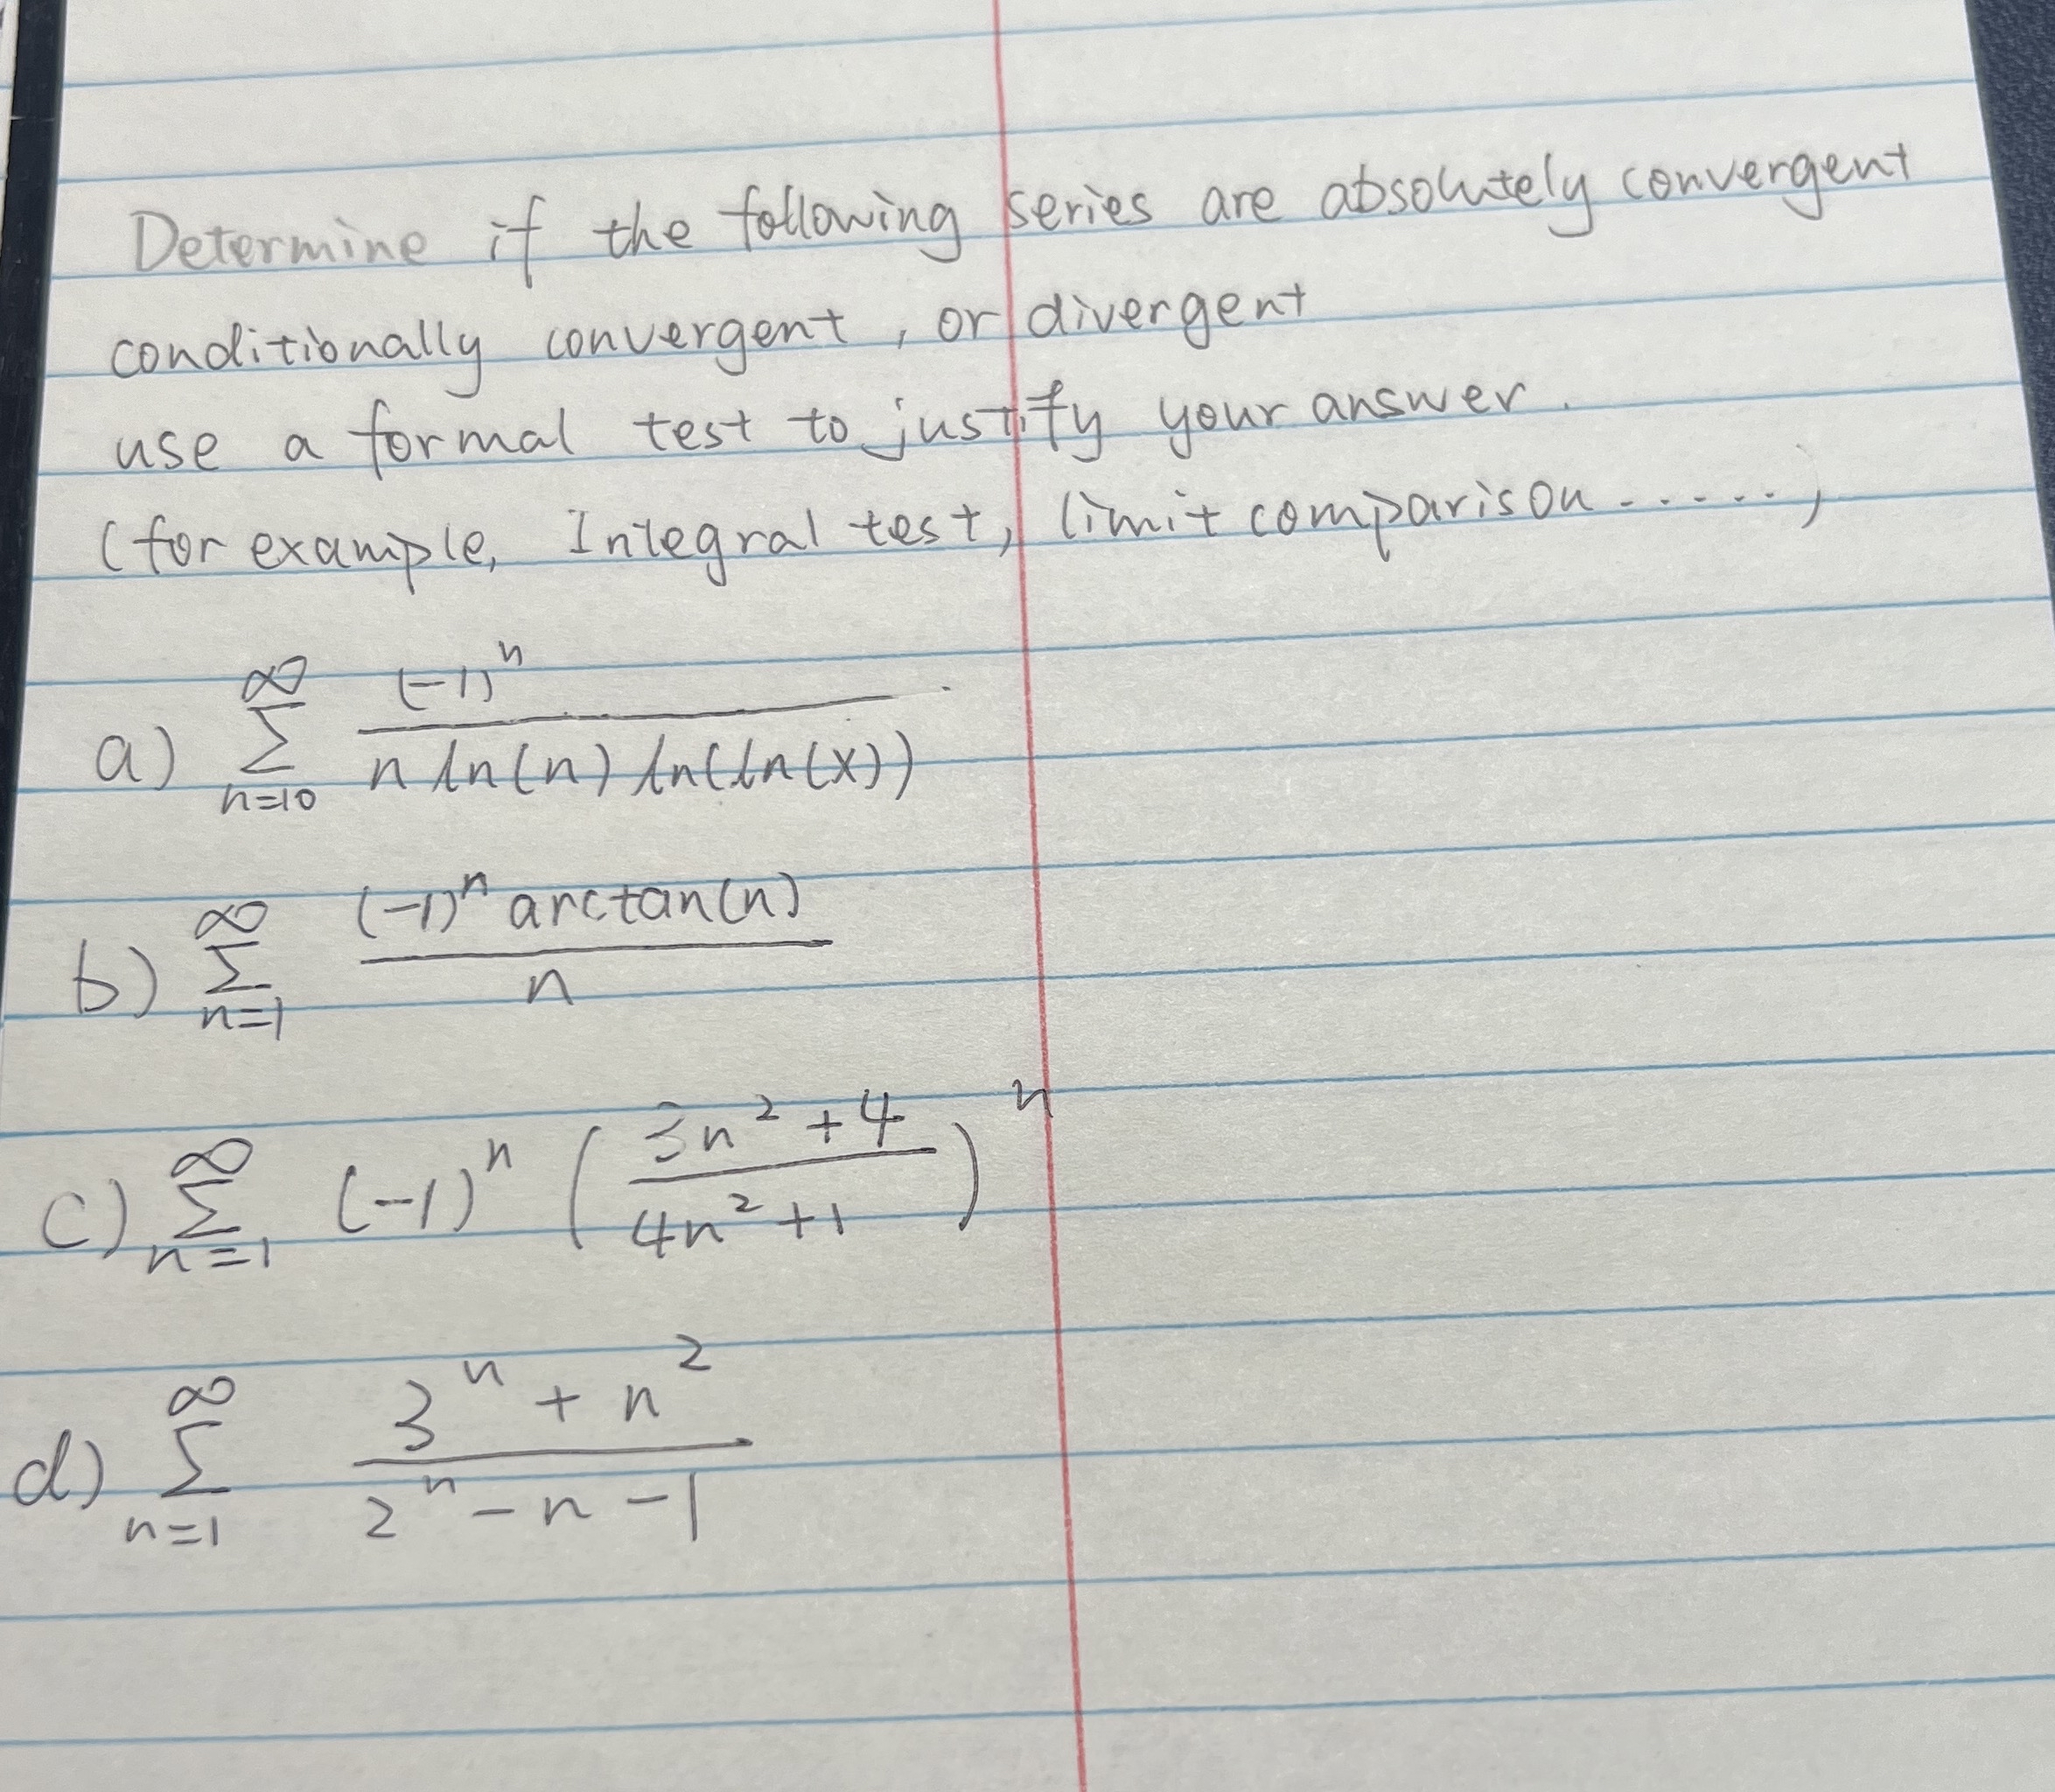 Determine if the following series are absolutely convergent
conditionally convergent, or divergent
use a formal test to justify your answer.
(for example, Integral test, limit comparison ......)
a) ∑_{n=10}^{∞} \frac{(-1)^n}{n ln(n) ln(ln(x))}
b) ∑_{n=1}^{∞} \frac{(-1)^n arctan(n)}{n}
c) ∑_{n=1}^{∞} (-1)^n (\frac{3n^2+4}{4n^2+1})^n
d) ∑_{n=1}^{∞} \frac{3^n+n^2}{2^n-n-1}